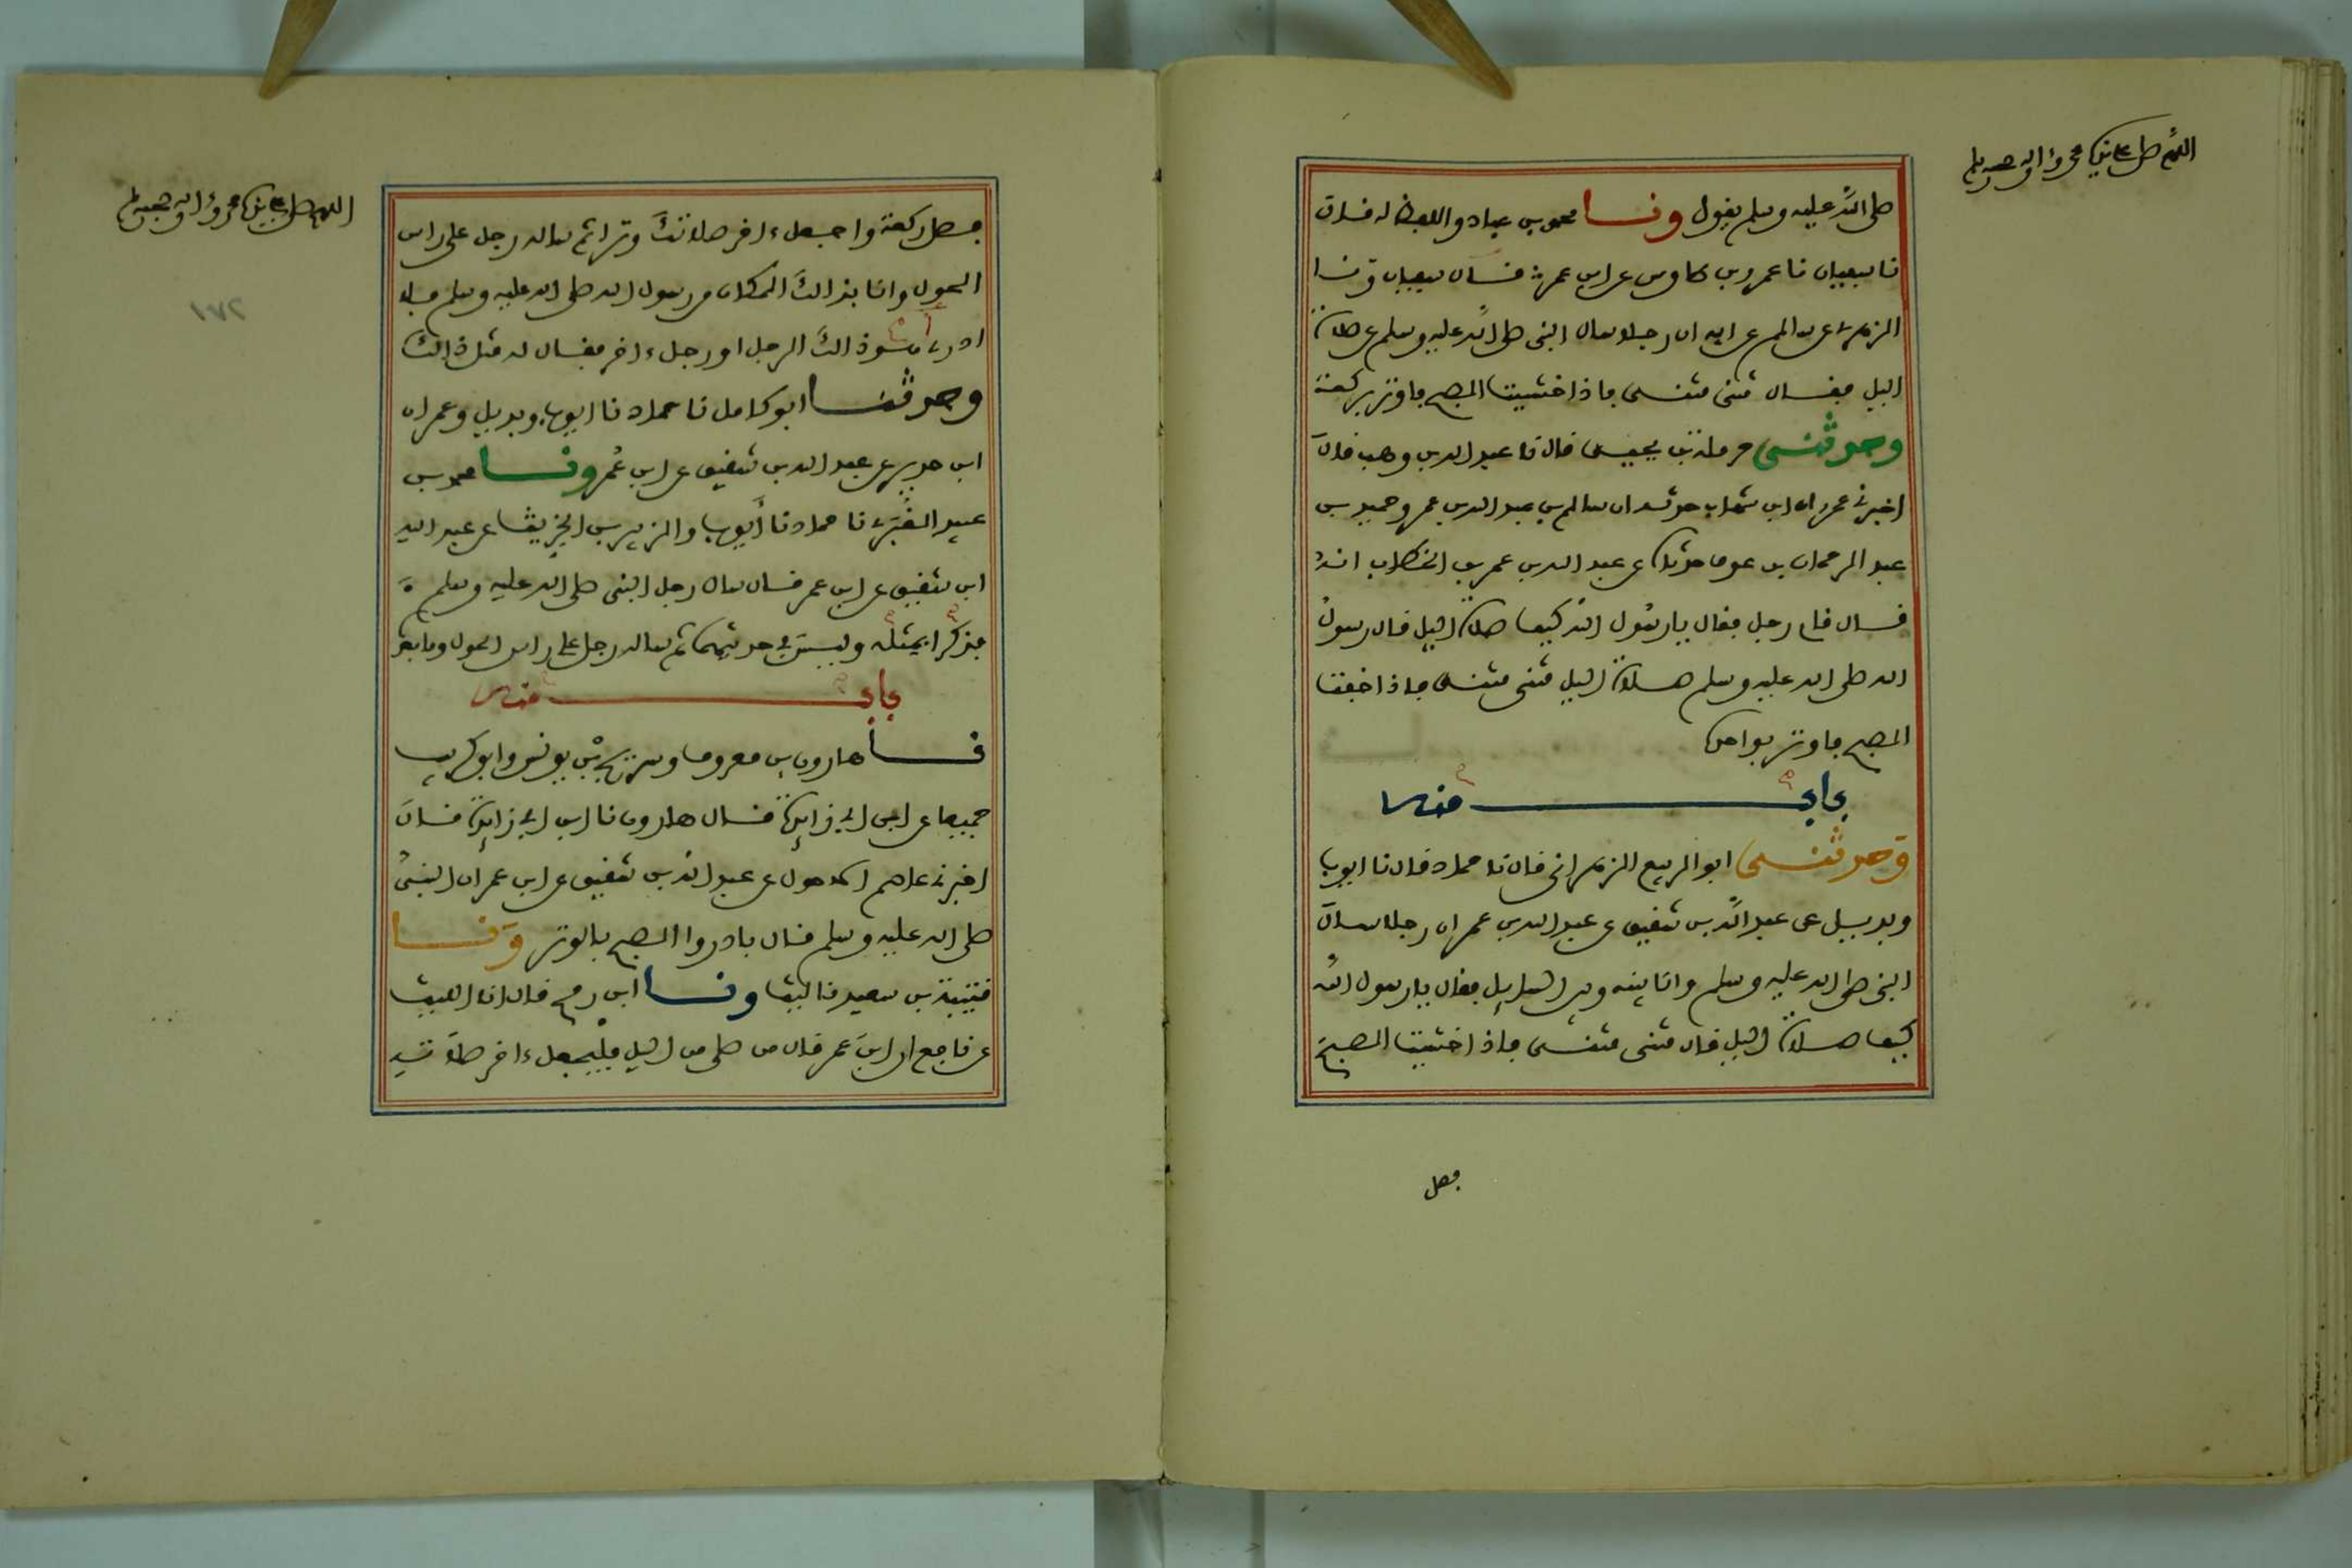 اللهم صل على نبينا محمد وءاله وصحبه وسلم
صلى الله عليه وسلم يقول ونا محمد بن عباد واللفظ له قال
نا سفيان نا عمرو بن طاوس عن ابن عمر ف قال سفيان ونا
الزهري عن سالم عن ابيه ان رجلا سال النبي صلى الله عليه وسلم عن صلاة
اليل فقال مثنى مثنى فاذا خشيت الصبح فاوتر بركعة
وحدثني حرملة بن يحيى قال نا عبد الله بن وهب قال
اخبرني عمر ان ابن شهاب حدثه ان سالم بن عبد الله بن عمر وحميد بن
عبد الرحمان بن عوف حدثاه عن عبد الله بن عمر بن الخطاب انه
قال قام رجل فقال يا رسول الله كيف صلاة اليل قال رسول
الله صلى الله عليه وسلم صلاة اليل مثنى مثنى فاذا خفت
الصبح فاوتر بواحدة
باب منه
وحدثني ابو الربيع الزهراني قال نا حماد قال نا ايوب
وبديل عن عبد الله بن شقيق عن عبد الله بن عمر ان رجلا سال
النبي صلى الله عليه وسلم وانا بينه وبين السايل فقال يا رسول الله
كيف صلاة اليل قال مثنى مثنى فاذا خشيت الصبح
فصل
اللهم صل على نبينا محمد وءاله وصحبه وسلم
٢٧١
فصل ركعة واجعل ءاخر صلاتك وترا ثم ساله رجل على راس
الحول وانا بذالك المكان من رسول الله صلى الله عليه وسلم فلا
ادري اهو ذالك الرجل او رجل ءاخر فقال له مثل ذالك
وحدثنا ابو كامل نا حماد نا ايوب وبديل وعمران
ابن حدير عن عبد الله بن شقيق عن ابن عمر ونا محمد بن
عبيد الغبري نا حماد نا أيوب والزبير بن الخريت عن عبد الله
ابن شقيق عن ابن عمر قال سال رجل النبي صلى الله عليه وسلم
فذكرا بمثله وليس في حديثهما ثم ساله رجل على راس الحول وما بعد
باب منه
نا هارون بن معروف وسريج بن يونس وابو كريب
جميعا عن ابن ابي زايدة قال هارون نا ابن ابي زايدة قال
اخبرني عاصم الاحول عن عبد الله بن شقيق عن ابن عمر ان النبي
صلى الله عليه وسلم قال بادروا الصبح بالوتر ونا
قتيبة بن سعيد نا ليث ونا ابن رمح قال انا الليث
عن نافع ان ابن عمر قال من صلى من اليل فليجعل ءاخر صلاته